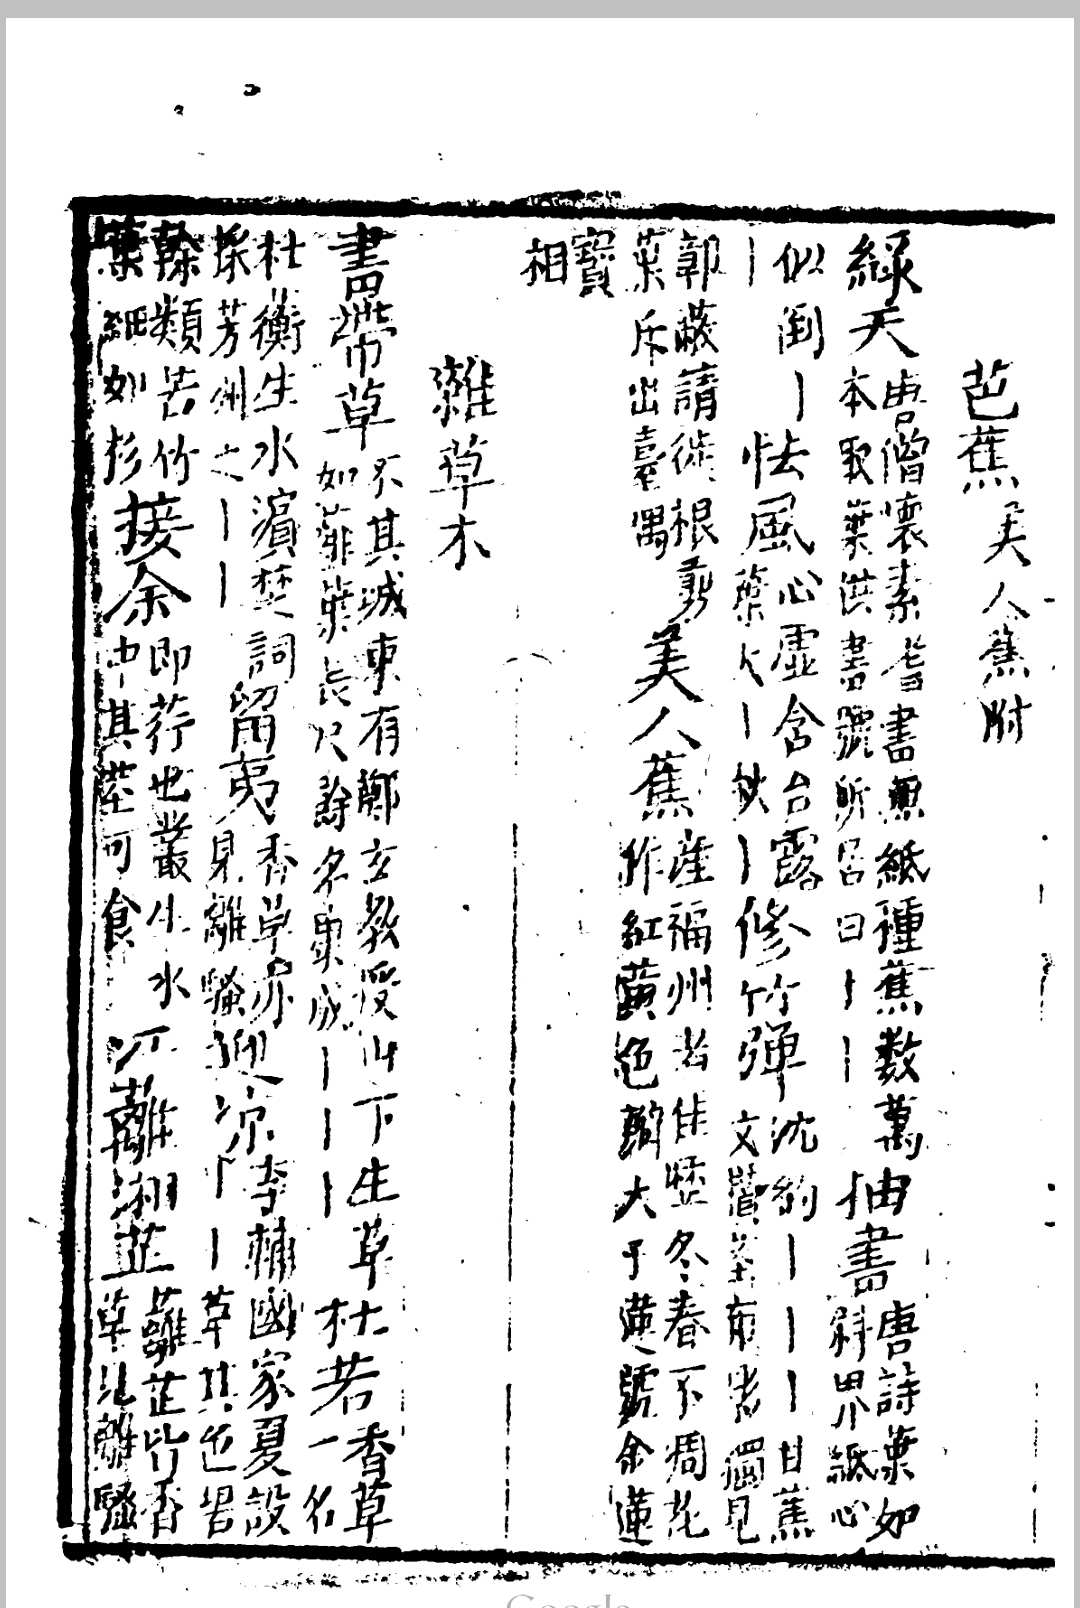 芭蕉美人蕉附
綠天
唐僧懷素嗜書無紙種蕉數萬
本取葉供書號所居曰丨丨
抽書
唐詩葉如
斜界紙心
似倒丨
丨
怯風
心虛含台露
葉大丨狀丨
修竹彈
沈約丨丨丨甘蕉
文
郭蔽請徙根剪
葉斥出臺隅
美人蕉
產福州者佳歷冬春不凋花
作紅黃色瓣大于蓮號金蓮
寶
相
雜草木
書帶草
不其城東有鄭玄教授山下生草
如薤葉長尺餘名康成丨丨丨
杜若
香草
一名
杜衡生水濱楚詞
採芳州之丨丨
留荑
香草亦
見離騷
迎凉
李輔國家夏設
丨丨草其色碧
幹類苦竹
葉細如杉
接余
即荇也叢生水
中其莖可食
江蘺湘芷
蘺芷皆香
草見離騷